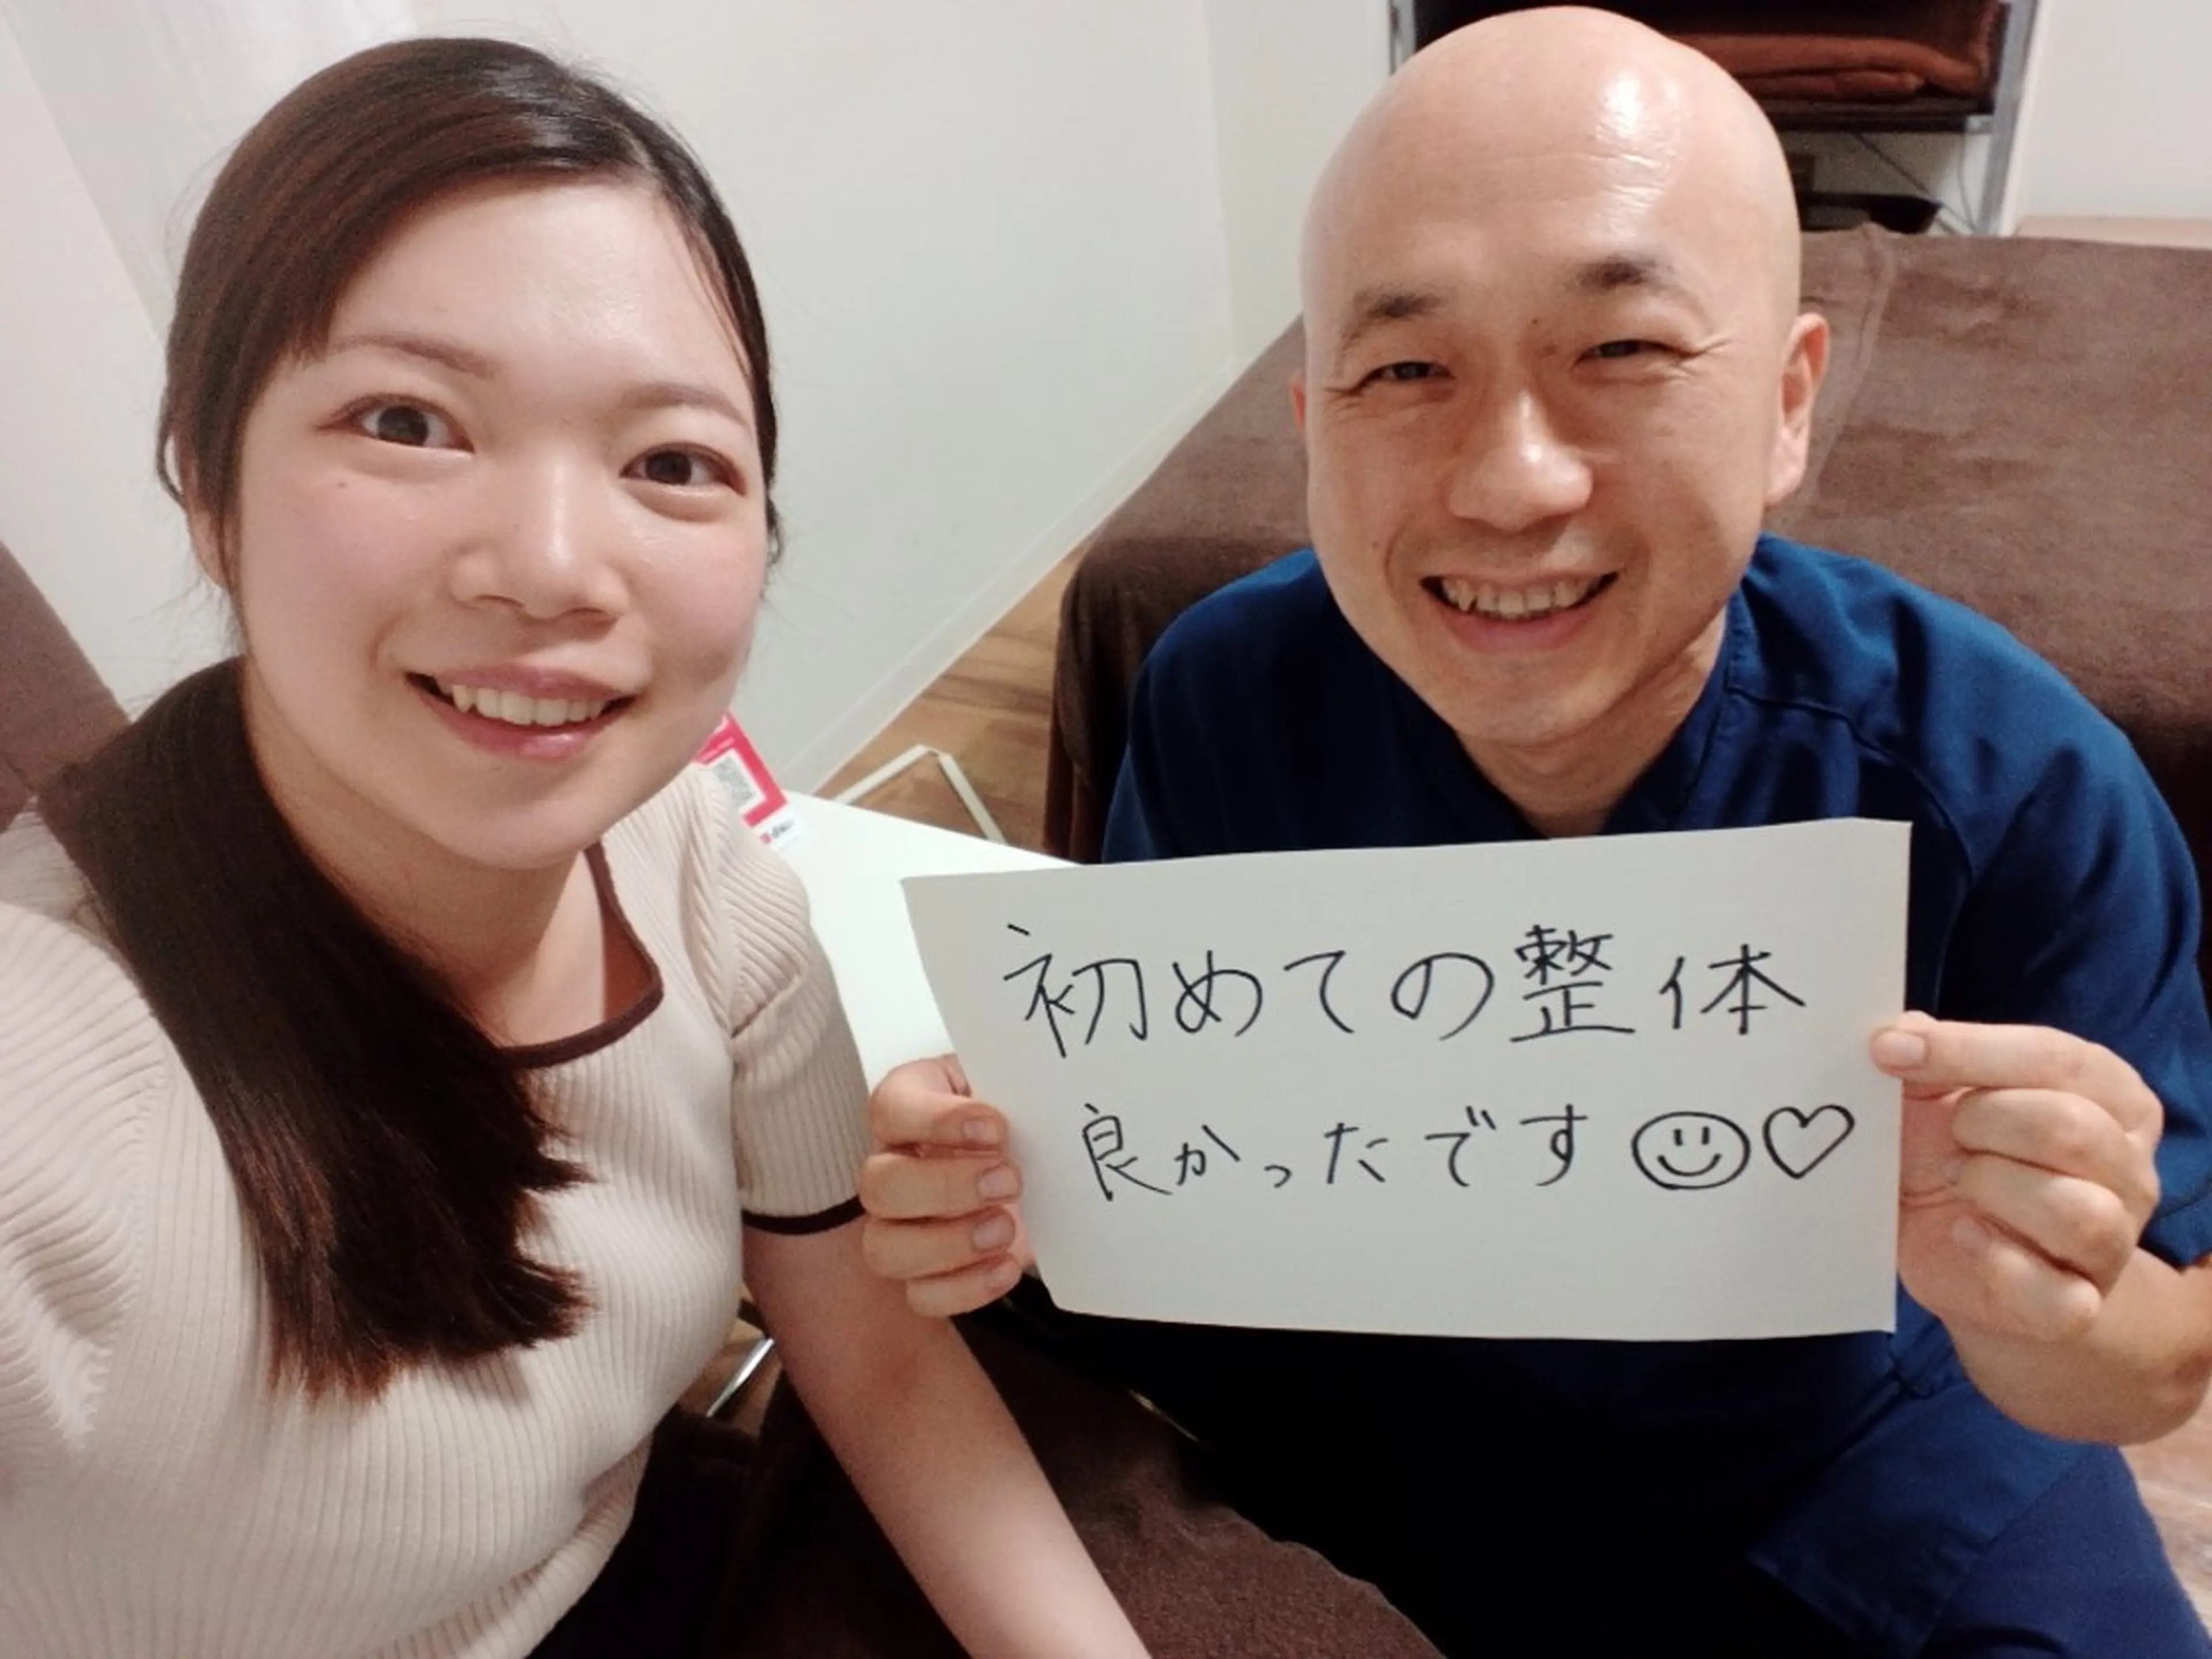 初めての整体
良かったです